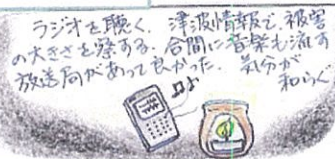 ラジオを聴く。津波情報で、被害
の大きさを察する。合間に音楽も流す
放送局があって良かった。気分が
和らぐ